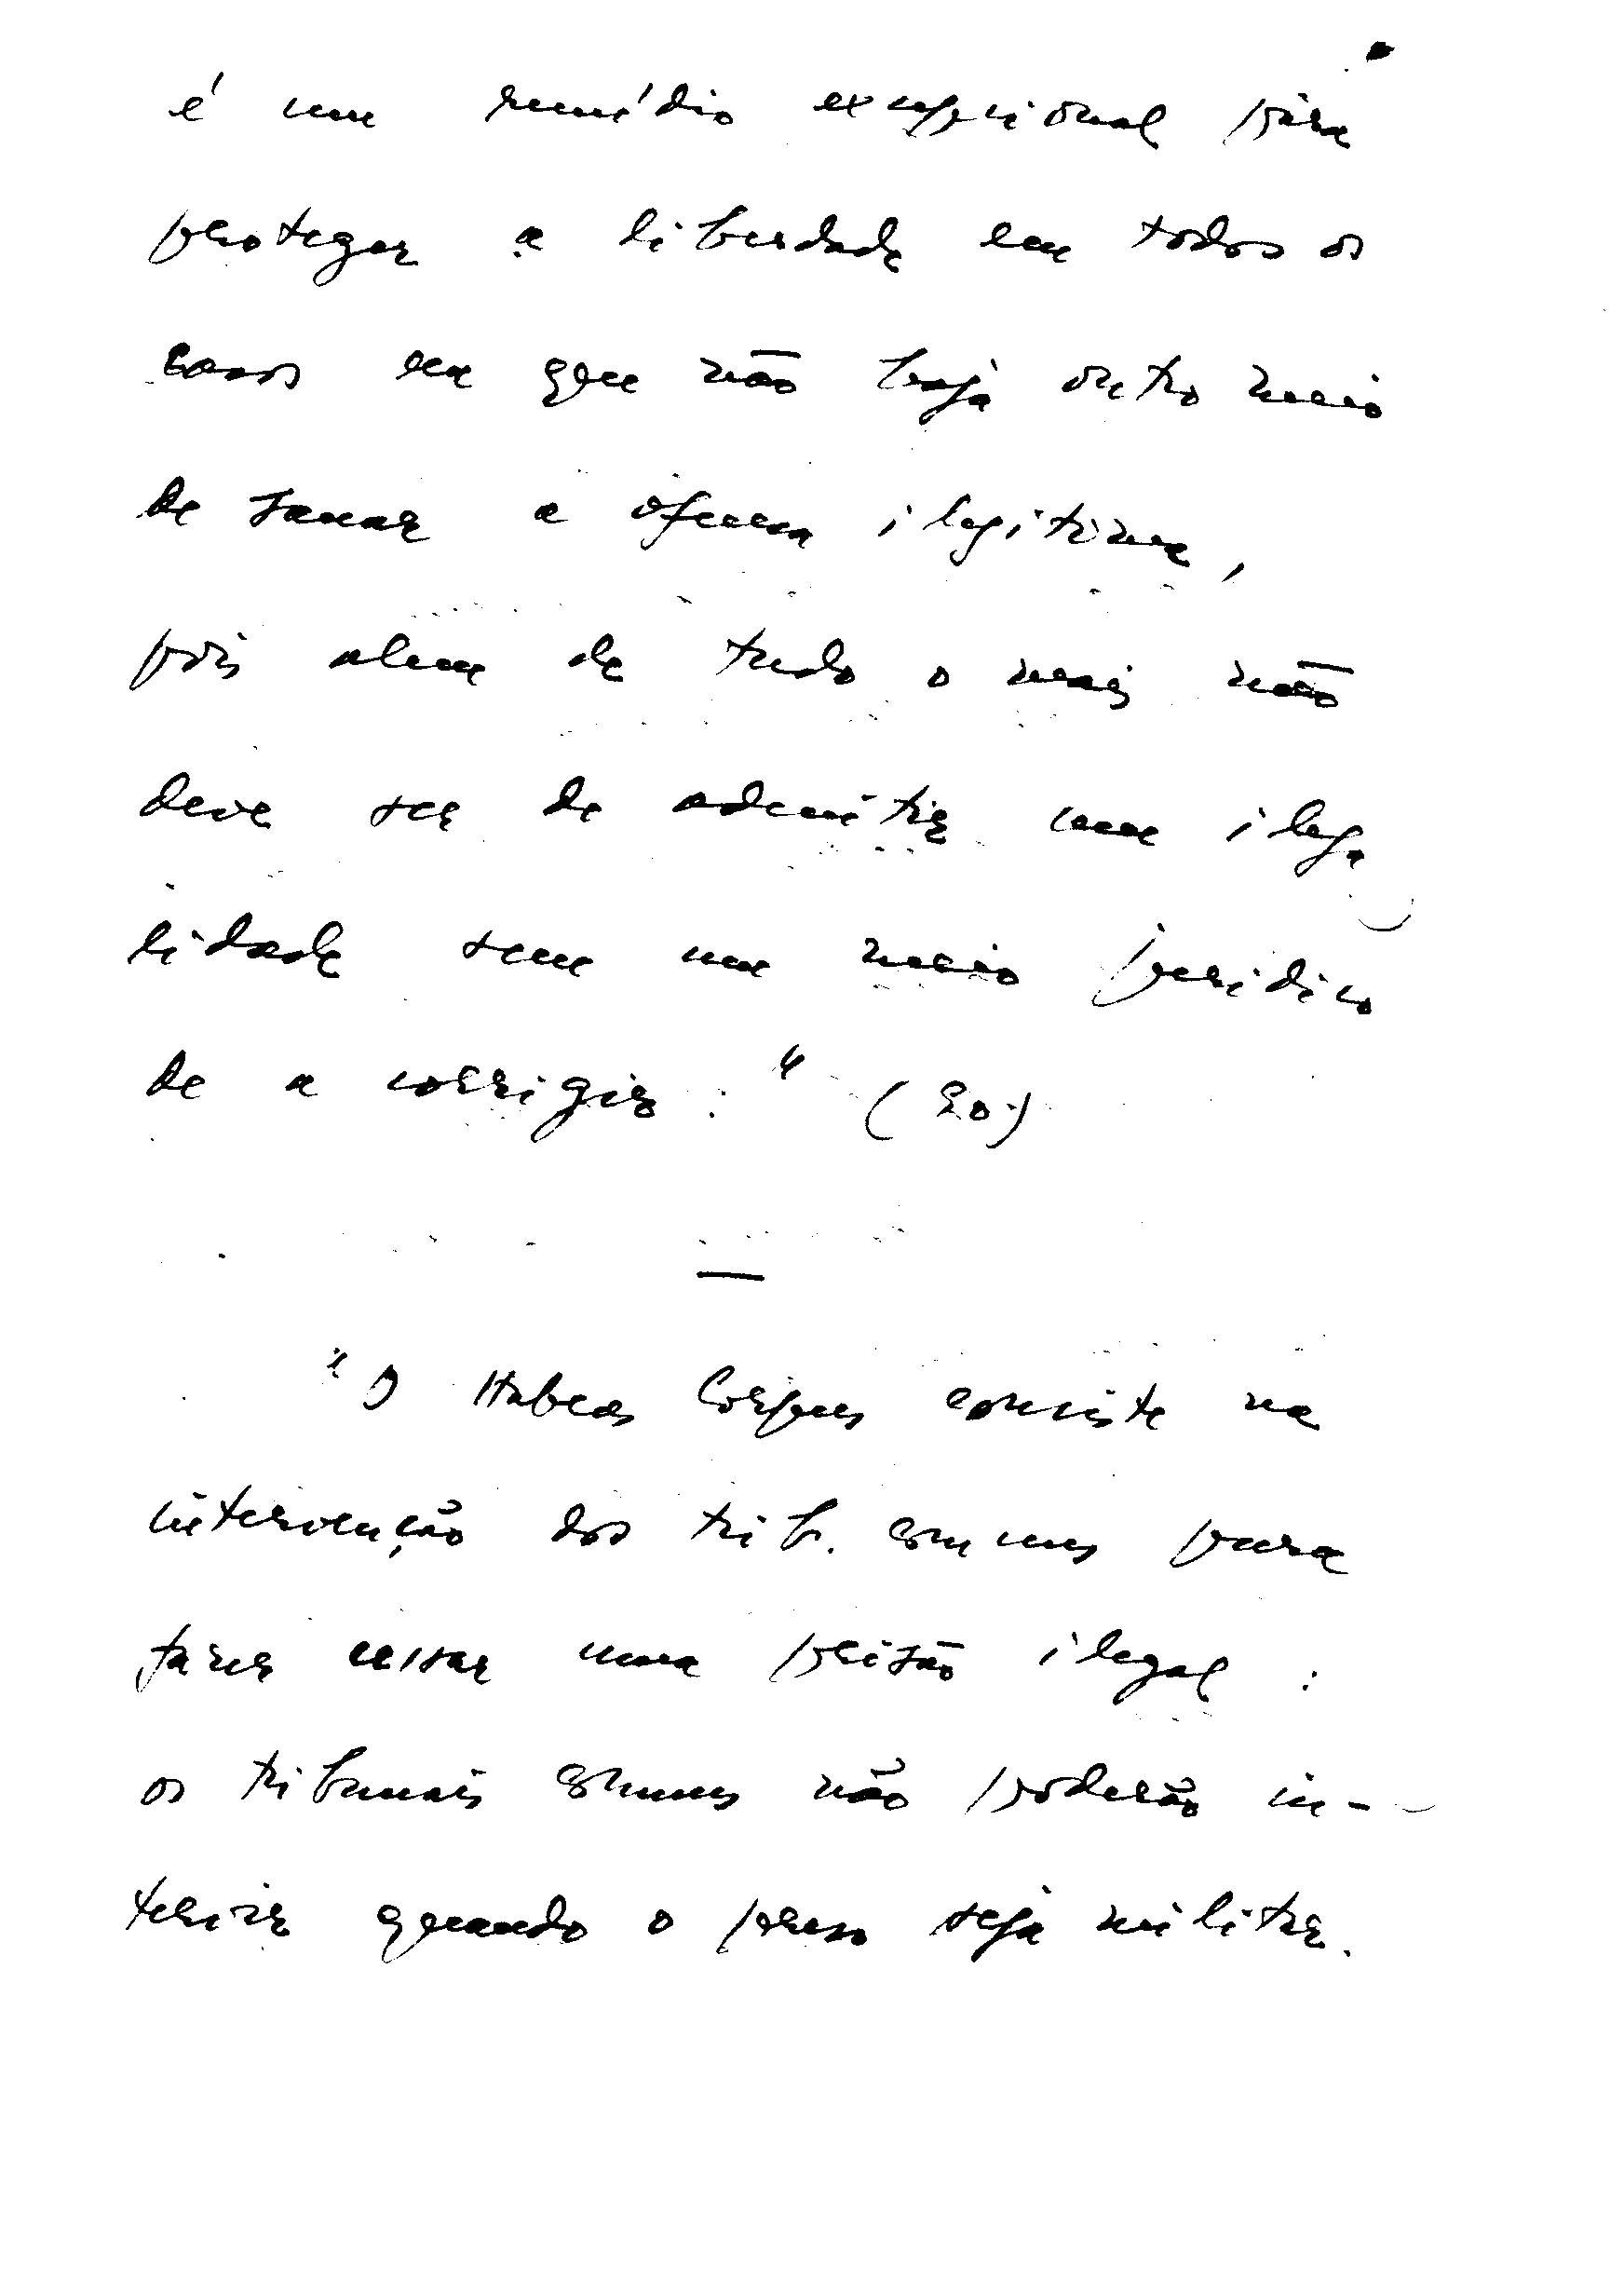 é um remédio excepcional para
proteger a liberdade em todos os
casos em que não haja outro meio
de sanar a ofensa ilegitima,
pois alem de tudo o mais não
deve ser de admitir uma ilega
lidade sem um meio juridico
de a corrigir." (20)
—
"O Habeas Corpus consiste na
intervenção dos trib. comuns para
fazer cessar uma prisão ilegal :
os tribunais comuns não poderão in-
tervir quando o preso seja militar.